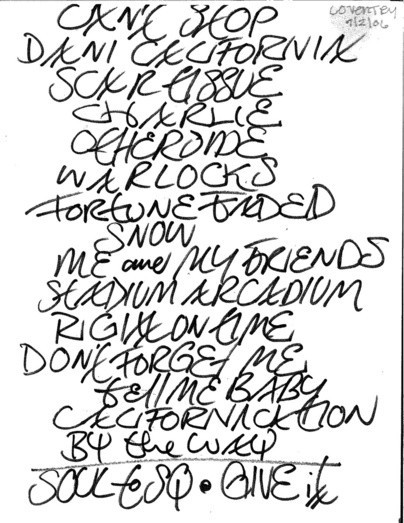 COVENTRY
7/2/06
CAN'T STOP
DANI CALIFORNIA
SCAR TISSUE
CHARLIE
OTHERSIDE
WARLOCKS
FORTUNE FADED
SNOW
ME and MY FRIENDS
STADIUM ARCADIUM
RIGHT ON TIME
DON'T FORGET ME
tell ME BABY
CALIFORNICATION
BY the WAY
SOUL to SQ • GIVE it